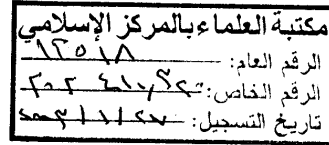 مكتبة العلماء بالمركز الإسلامي
الرقم العام: ١٢٥١٨
الرقم الخاص:
تاريخ التسجيل: